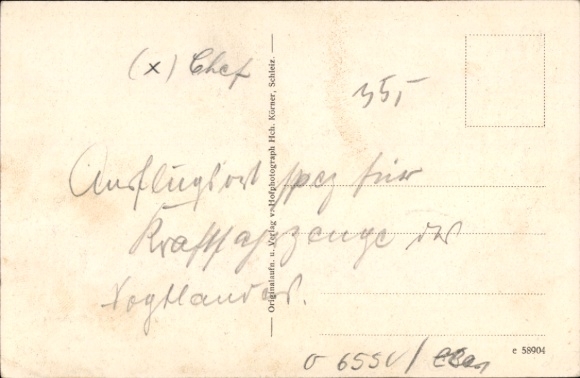 (x) Chef
35,-
Ausflugsort spez für
Kraftfahrzeuge des
Vogtlandes.
Originalaufn. u. Verlag v. Hofphotograph Hch. Körner, Schleiz.
c 58904